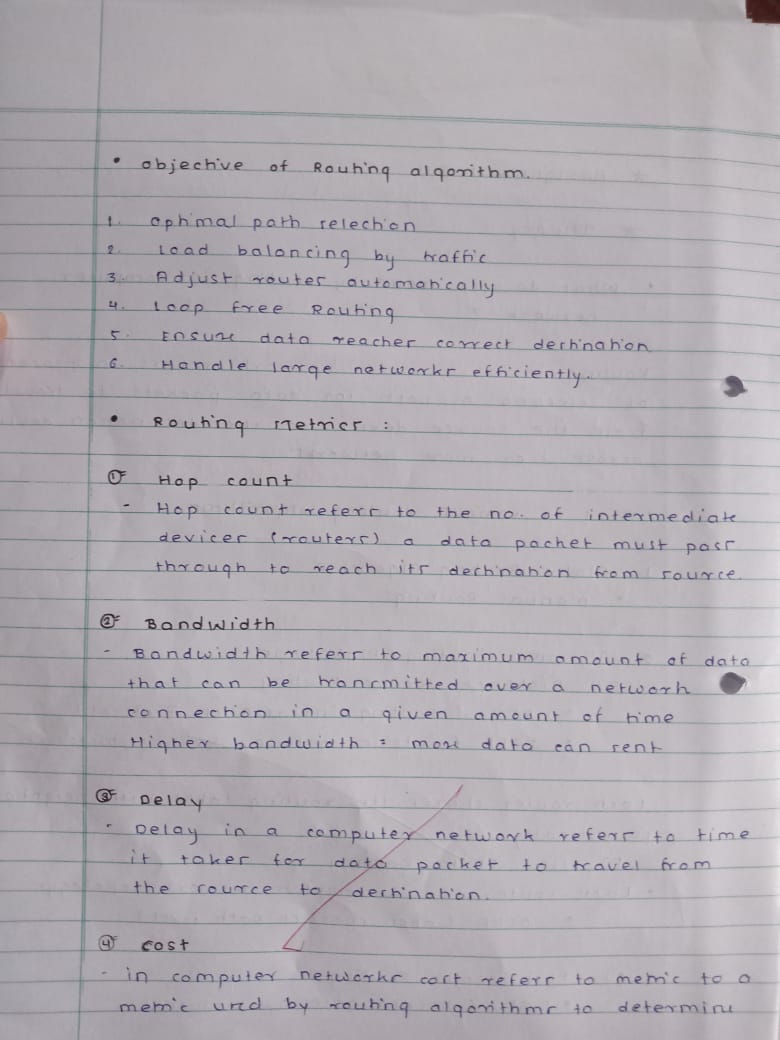 • Objective of Routing algorithm.
1. Optimal path selection
2. Load balancing by traffic
3. Adjust routes automatically
4. Loop free Routing
5. Ensure data reaches correct destination
6. Handle large networks efficiently.
• Routing Metrics :
① Hop count
- Hop count refers to the no. of intermediate
devices (routers) a data packet must pass
through to reach its destination from source.
② Bandwidth
- Bandwidth refers to maximum amount of data
that can be transmitted over a network
connection in a given amount of time
Higher bandwidth = more data can sent
③ Delay
- Delay in a computer network refers to time
it takes for data packet to travel from
the source to destination.
④ cost
- in computer networks cost refers to metric to a
metric used by routing algorithms to determine